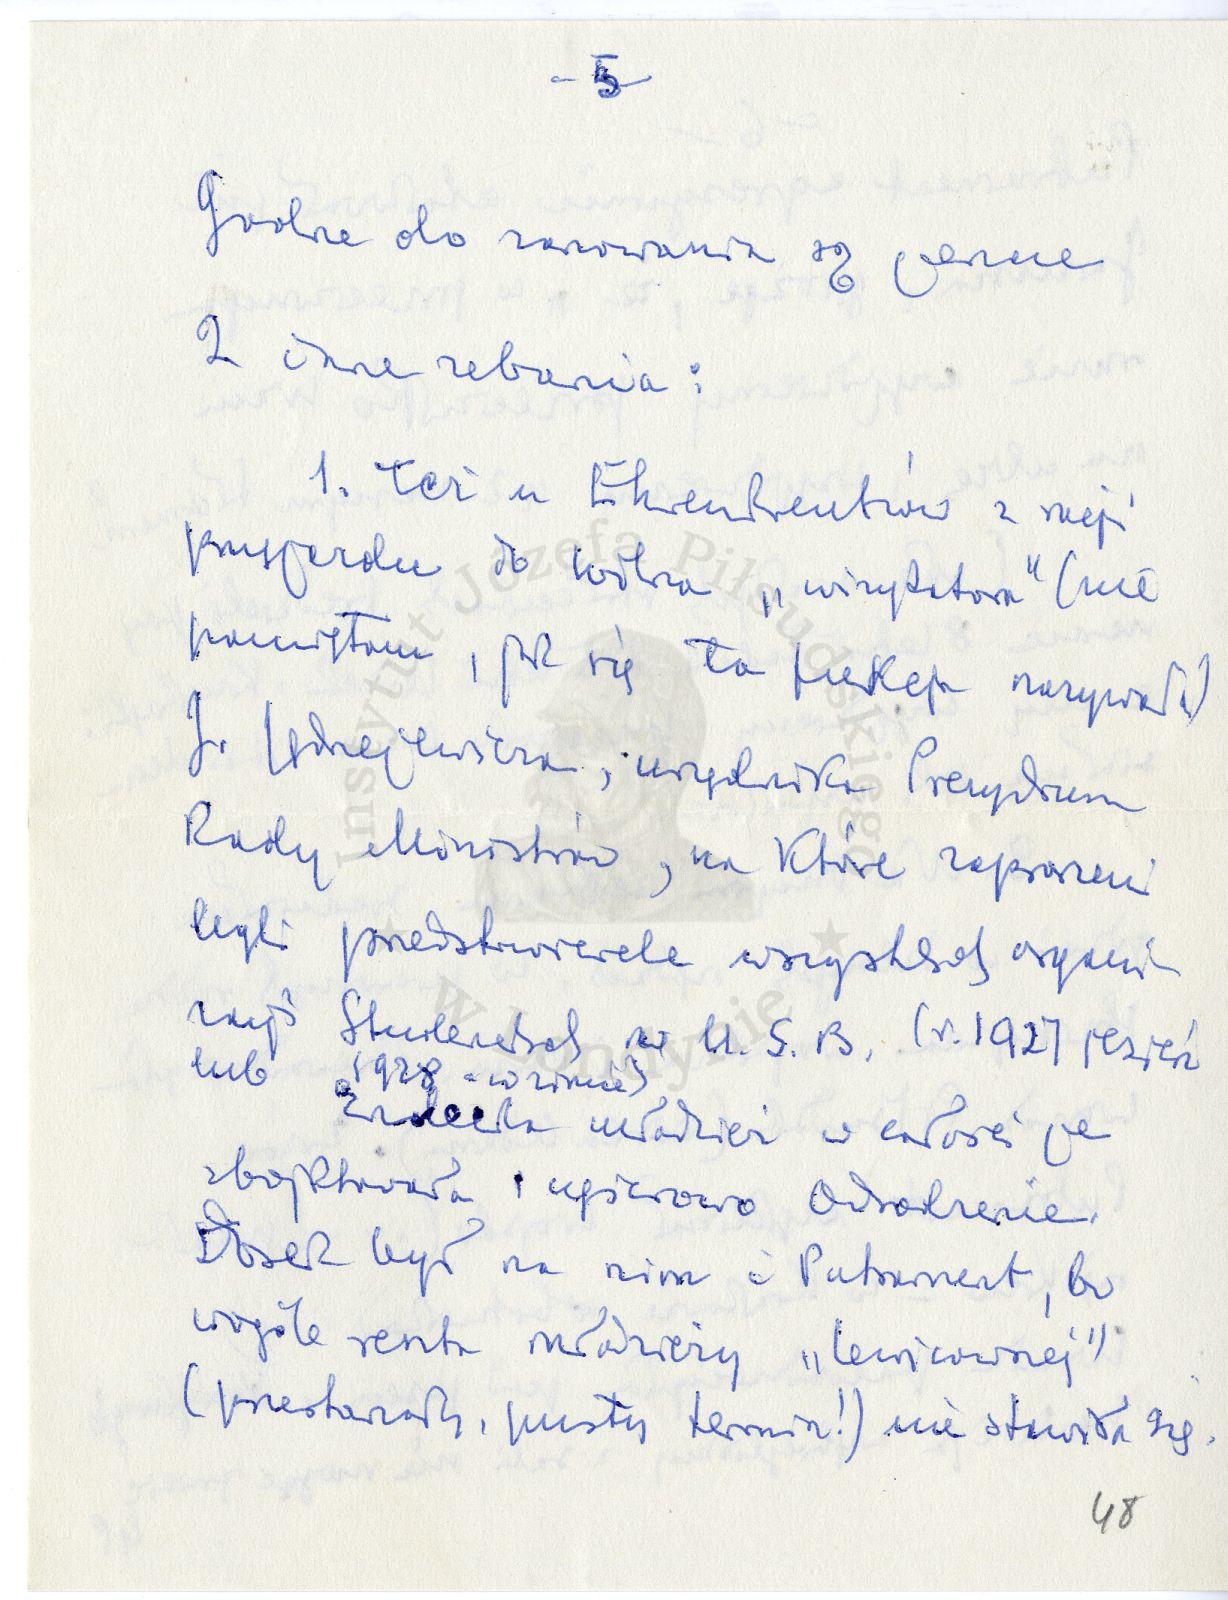 - 5 -
Godne do zanotowania są jeszcze
2 inne zebrania:
1. Też u Ehrenkreutzów z racji
przyjazdu do Wilna „wizytatora" (nie
pamiętam, jak się ta funkcja nazywała)
J. Jędrzejewicza, urzędnika Prezydium
Rady Ministrów, na które zaproszeni
byli przedstawiciele wszystkich organi-
zacji Studenckich w U.S.B. (r. 1927 jesień
lub 1928 - w zimie)
młodzież w całości je
zbojktowała i ugrupowo Odrodzenie.
był na nim i Putrament, bo
wogóle reszta młodzieży „lewicowszej"
(przestarzały, pusty termin!) nie stawiła się.
48
Instytut Józefa Piłsudskiego
w Londynie